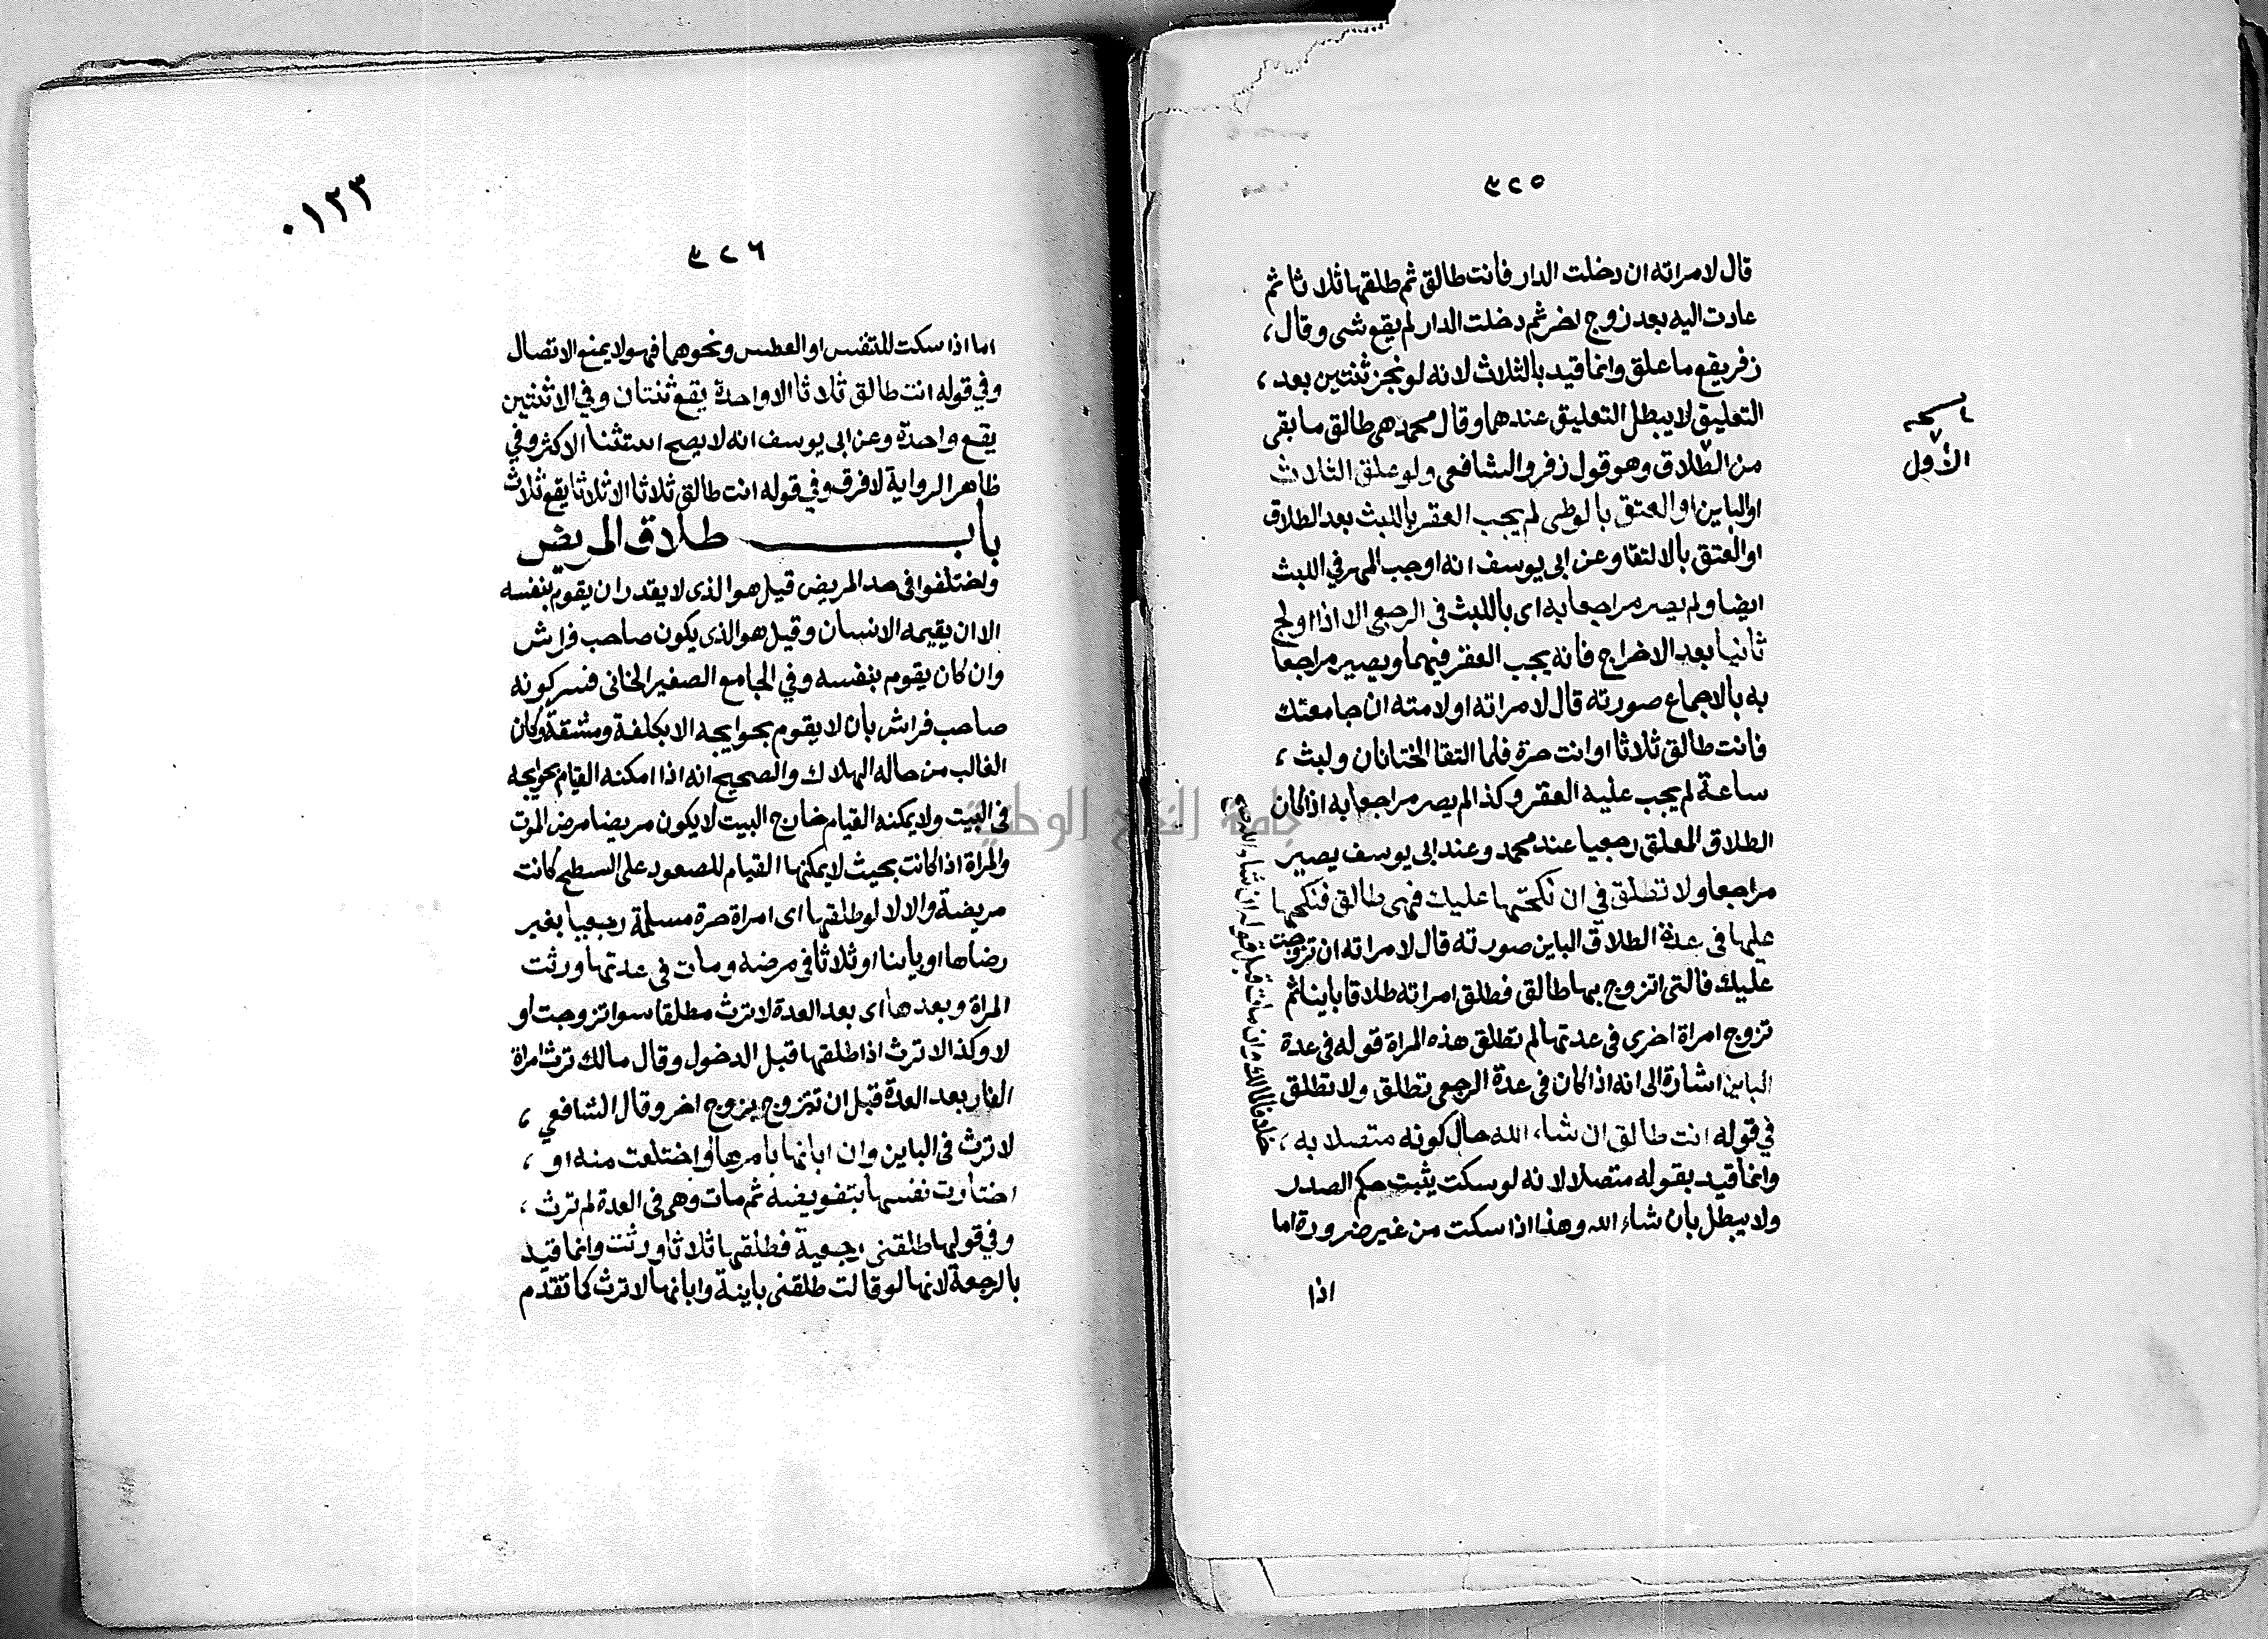 ٤٢٥
قال لامراته ان دخلت الدار فانت طالق ثم طلقها ثلاثا ثم
عادت اليه بعد زوج اخر ثم دخلت الدار لم يقع شى وقال
زفر يقع ما علق وانما قيد بالثلاث لانه لو نجز ثنتين بعد
التعليق لا يبطل التعليق عندهما وقال محمد هى طالق ما بقى
من الطلاق وهو قول زفر والشافعى ولو علق الثلاث
او الباين او العتق بالوطى لم يجب العقر باللبث بعد الطلاق
او العتق بالالتقا وعن ابى يوسف انه اوجب المهر في اللبث
ايضا ولم يصر مراجعا به اى باللبث فى الرجعى الا اذا اولج
ثانيا بعد الاخراج فانه يجب العقر فيهما ويصير مراجعا
به بالاجماع صورته قال لامراته او لامته ان جامعتك
فانت طالق ثلاثا او انت حرة فلما التقا الختانان ولبث
ساعة لم يجب عليه العقر وكذا لم يصر مراجعا به اذا كان
الطلاق المعلق رجعيا عند محمد وعند ابى يوسف يصير
مراجعا ولا تطلق في ان نكحتها عليك فهى طالق فنكحها
عليها فى عدة الطلاق الباين صورته قال لامراته ان تزوجت
عليك فالتى اتزوج بها طالق فطلق امراته طلاقا باينا ثم
تزوج امراة اخرى فى عدتها لم تطلق هذه المراة قوله فى عدة
الباين اشارة الى انه اذا كان فى عدة الرجعى تطلق ولا تطلق
في قوله انت طالق ان شاء الله حال كونه متصلا به
وانما قيد بقوله متصلا لانه لو سكت يثبت حكم الصدر
ولا يبطل بان شاء الله وهذا اذا سكت من غير ضرورة اما
اذا
نسخه
الاول
خلافا لمالك وان ماتت قبل قوله ان شاء الله
٠١٢٣
٤٢٦
اما اذا سكت للتنفس او العطس ونحوهما فهو لا يمنع الاتصال
وفي قوله انت طالق ثلاثا الا واحدة يقع ثنتان وفي الا ثنتين
يقع واحدة وعن ابى يوسف انه لا يصح استثنا الاكثر وفي
ظاهر الرواية لا فرق وفي قوله انت طالق ثلاثا الا ثلاثا يقع ثلاث
باب طلاق المريض
واختلفوا فى حد المريض قيل هو الذى لا يقدر ان يقوم بنفسه
الا ان يقيمه الانسان وقيل هو الذى يكون صاحب فراش
وان كان يقوم بنفسه وفي الجامع الصغير الخانى فسر كونه
صاحب فراش بان لا يقوم بحوايجه الا بكلفة ومشقة وكان
الغالب من حاله الهلاك والصحيح انه اذا امكنه القيام بحوايجه
فى البيت ولا يمكنه القيام خارج البيت لا يكون مريضا مرض الموت
والمراة اذا كانت بحيث لا يمكنها القيام للصعود على السطح كانت
مريضة والا لا لو طلقها اى امراة حرة مسلمة رجعيا بغير
رضاها او باينا او ثلاثا فى مرضه ومات فى عدتها ورثت
المراة وبعدها اى بعد العدة لا ترث مطلقا سوا تزوجت او
لا وكذا لا ترث اذا طلقها قبل الدخول وقال مالك ترث امراة
الفار بعد العدة قبل ان تتزوج بزوج اخر وقال الشافعي
لا ترث فى الباين وان ابانها بامرها او اختلعت منه او
اختارت نفسها بتفويضه ثم مات وهى فى العدة لم ترث
وفي قولها طلقنى رجعية فطلقها ثلاثا ورثت وانما قيد
بالرجعة لانها لو قالت طلقنى باينة وابانها لا ترث كما تقدم
جامعة النجاح الوطنية